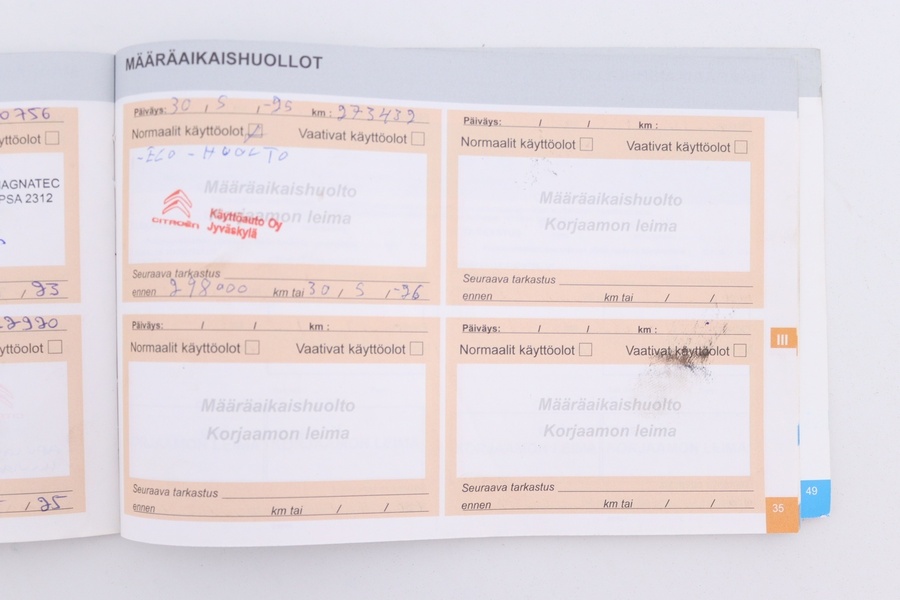 MÄÄRÄAIKAISHUOLLOT
0756
yttöolot
AGNATEC
PSA 2312
, 23
22920
yttöolot
, 25
Päiväys: 30 , 5 , -25 km : 273432
Normaalit käyttöolot Vaativat käyttöolot
-ECO - HUOLTO
Määräaikaishuolto
Korjaamon leima
CITROËN
Käyttöauto Oy
Jyväskylä
Seuraava tarkastus
ennen 298000 km tai 30 , 5 , -26
Päiväys: / / km :
Normaalit käyttöolot Vaativat käyttöolot
Määräaikaishuolto
Korjaamon leima
Seuraava tarkastus
ennen km tai / /
Päiväys: / / km :
Normaalit käyttöolot Vaativat käyttöolot
Määräaikaishuolto
Korjaamon leima
Seuraava tarkastus
ennen km tai / /
Päiväys: / / km :
Normaalit käyttöolot Vaativat käyttöolot
Määräaikaishuolto
Korjaamon leima
Seuraava tarkastus
ennen km tai / /
III
35
49